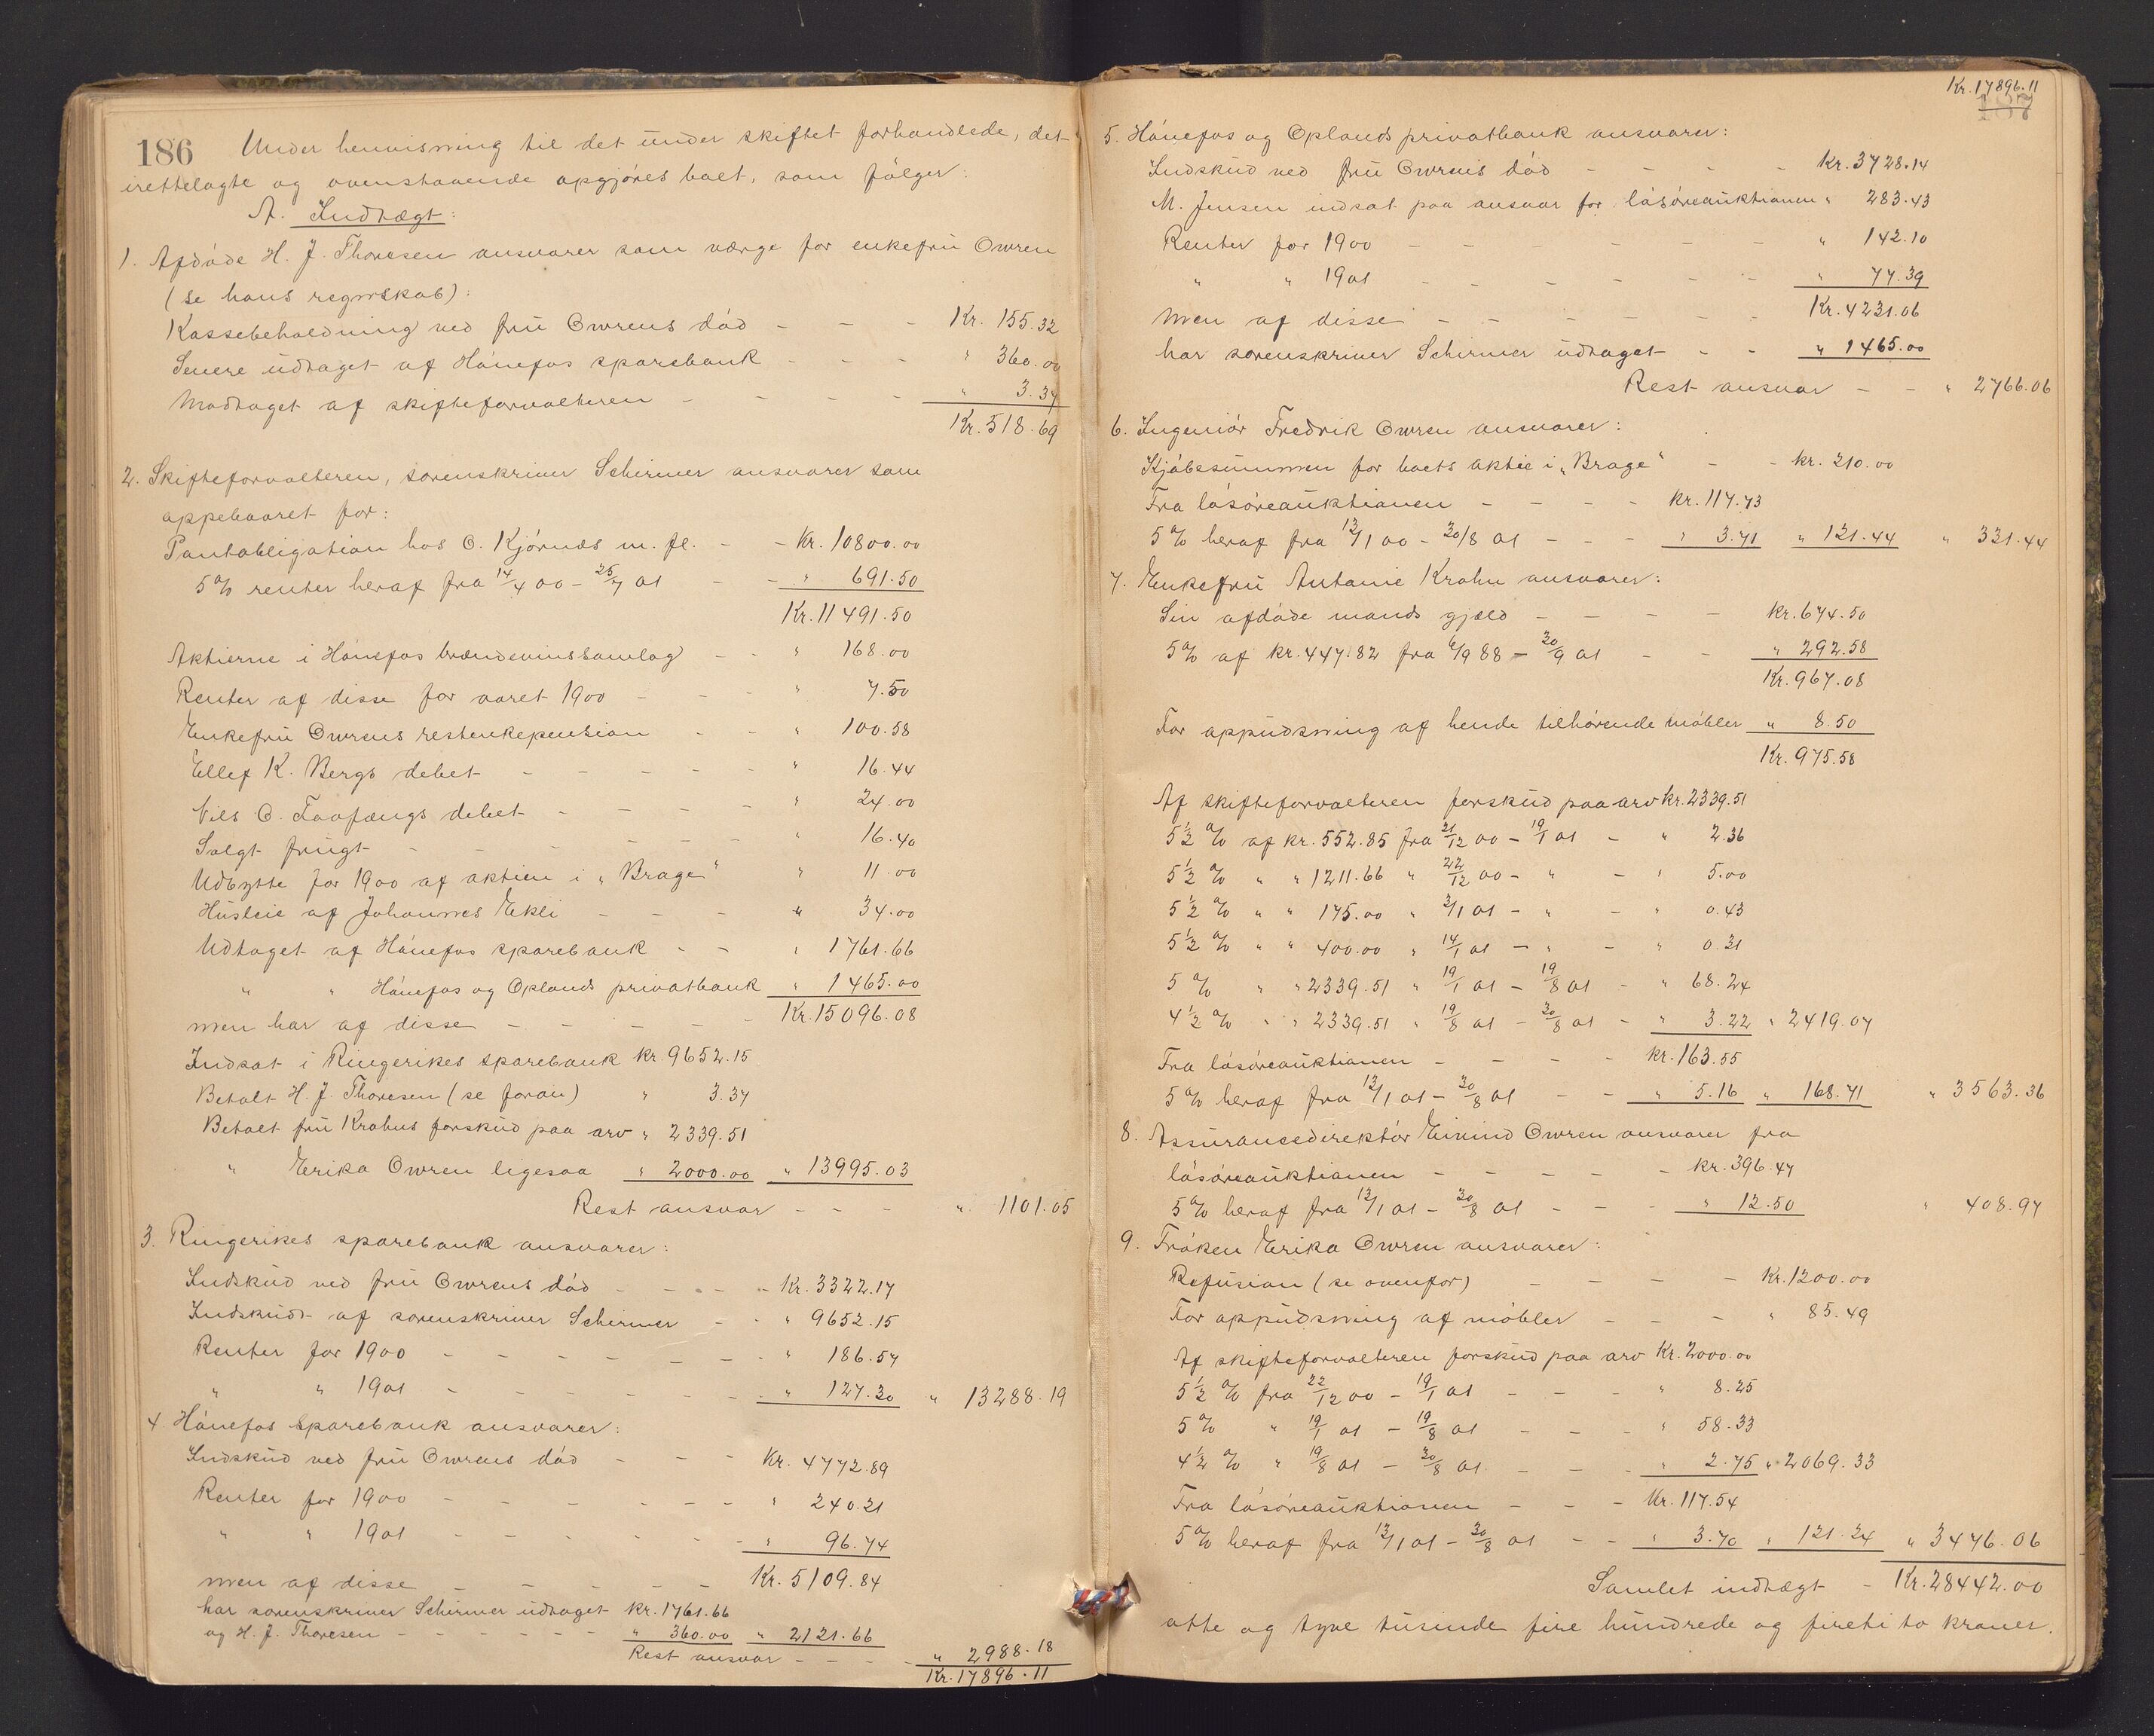 186
Under henvisning til det under skiftet forhandlede, det
irettelagte og ovenstaaende opgjøres boet, som følger:
A. Indtægt:
1. Afdøde H. J. Thoresen ansvarer som værge for enkefru Owren
(se hans regnskab):
Kassebeholdning ved fru Owrens død - - - Kr. 155.32
Senere udtaget af Hønefos sparebank - - - " 360.00
Modtaget af skifteforvalteren - - - - " 3.37
Kr. 518.69
2. Skifteforvalteren, sorenskriver Schirmer ansvarer som
oppebaaret for:
Pantobligation hos O. Kjørnæs m. fl. - - Kr. 10800.00
5 % renter heraf fra 14/4 00 - 25/7 01 - - " 691.50
Kr. 11491.50
Aktierne i Hønefos brændevinssamlag - - " 168.00
Renter af disse for aaret 1900 - - - " 7.50
Enkefru Owrens restenkepension - - " 100.58
Ellef K. Bergs debet - - - - - " 16.44
Nils O. Taafængs debet - - - - " 24.00
Solgt frugt - - - - - - " 16.40
Udbytte for 1900 af aktien i "Brage" " 11.00
Husleie af Johannes Ekli - - - " 34.00
Udtaget af Hønefos sparebank - - " 1761.66
" " Hønefos og Oplands privatbank " 1465.00
men har af disse - - - - - Kr. 15096.08
Indsat i Ringerikes sparebank Kr. 9652.15
Betalt H. J. Thoresen (se foran) " 3.37
Betalt fru Krohns forskud paa arv " 2339.51
" Erika Owren ligesaa " 2000.00 " 13995.03
Rest ansvar - - - " 1101.05
3. Ringerikes sparebank ansvarer:
Indskud ved fru Owrens død - - - - Kr. 3322.17
Indskudt af sorenskriver Schirmer - - " 9652.15
Renter for 1900 - - - - - - - " 186.57
" " 1901 - - - - - - - " 127.30 " 13288.19
4. Hønefos sparebank ansvarer:
Indskud ved fru Owrens død - - - Kr. 4772.89
Renter for 1900 - - - - - - " 240.21
" " 1901 - - - - - - " 96.74
men af disse - - - - - Kr. 5109.84
har sorenskriver Schirmer udtaget Kr. 1761.66
og H. J. Thoresen - - - - - - " 360.00 " 2121.66
Rest ansvar - - - - " 2988.18
Kr. 17896.11
Kr. 17896.11
187
5. Hønefos og Oplands privatbank ansvarer:
Indskud ved fru Owrens død - - - - Kr. 3728.14
M. Jensen indsat paa ansvar for løsøreauktionen " 283.43
Renter for 1900 - - - - - - " 142.10
" " 1901 - - - - - - " 77.39
men af disse - - - - - - Kr. 4231.06
har sorenskriver Schirmer udtaget - - " 1465.00
Rest ansvar - - " 2766.06
6. Ingeniør Fredrik Owren ansvarer:
Kjøbesummen for boets aktie i "Brage" - - kr. 210.00
Fra løsøreauktionen - - - - kr. 117.73
5 % heraf fra 12/1 00 - 30/8 01 - - - " 3.71 " 121.44 " 331.44
7. Enkefru Antonie Krohn ansvarer:
Sin afdøde mands gjæld - - - - kr. 674.50
5 % af kr. 447.82 fra 6/9 88 - 30/9 01 - - " 292.58
Kr. 967.08
For oppudsning af hende tilhørende møbler " 8.50
Kr. 975.58
Af skifteforvalteren forskud paa arv kr. 2339.51
5 1/2 % af kr. 552.85 fra 21/12 00 - 19/1 01 - " 2.36
5 1/2 % " " 1211.66 " 22/12 00 - " - " 5.00
5 1/2 % " " 175.00 " 3/1 01 - " - " 0.43
5 1/2 % " " 400.00 " 14/1 01 - " - " 0.31
5 % " " 2339.51 " 19/1 01 - 19/8 01 - " 68.24
4 1/2 % " " 2339.51 " 19/8 01 - 30/8 01 - " 3.22 " 2419.07
Fra løsøreauktionen - - - - kr. 163.55
5 % heraf fra 12/1 01 - 30/8 01 - - " 5.16 " 168.71 " 3563.36
8. Assurancedirektør Eivind Owren ansvarer fra
løsøreauktionen - - - - - kr. 396.47
5 % heraf fra 12/1 01 - 30/8 01 - - - " 12.50 " 408.97
9. Frøken Erika Owren ansvarer:
Refusion (se ovenfor) - - - - Kr. 1200.00
For oppudsning af møbler - - - " 85.49
Af skifteforvalteren forskud paa arv Kr. 2000.00
5 1/2 % fra 22/12 00 - 19/1 01 - - - " 8.25
5 % " 19/1 01 - 19/8 01 - - - " 58.33
4 1/2 % " 19/8 01 - 30/8 01 - - - " 2.75 " 2069.33
Fra løsøreauktionen - - - Kr. 117.54
5 % heraf fra 12/1 01 - 30/8 01 - - " 3.70 " 121.24 " 3476.06
Samlet indtægt - Kr. 28442.00
otte og tyve tusinde fire hundrede og firti to kroner.